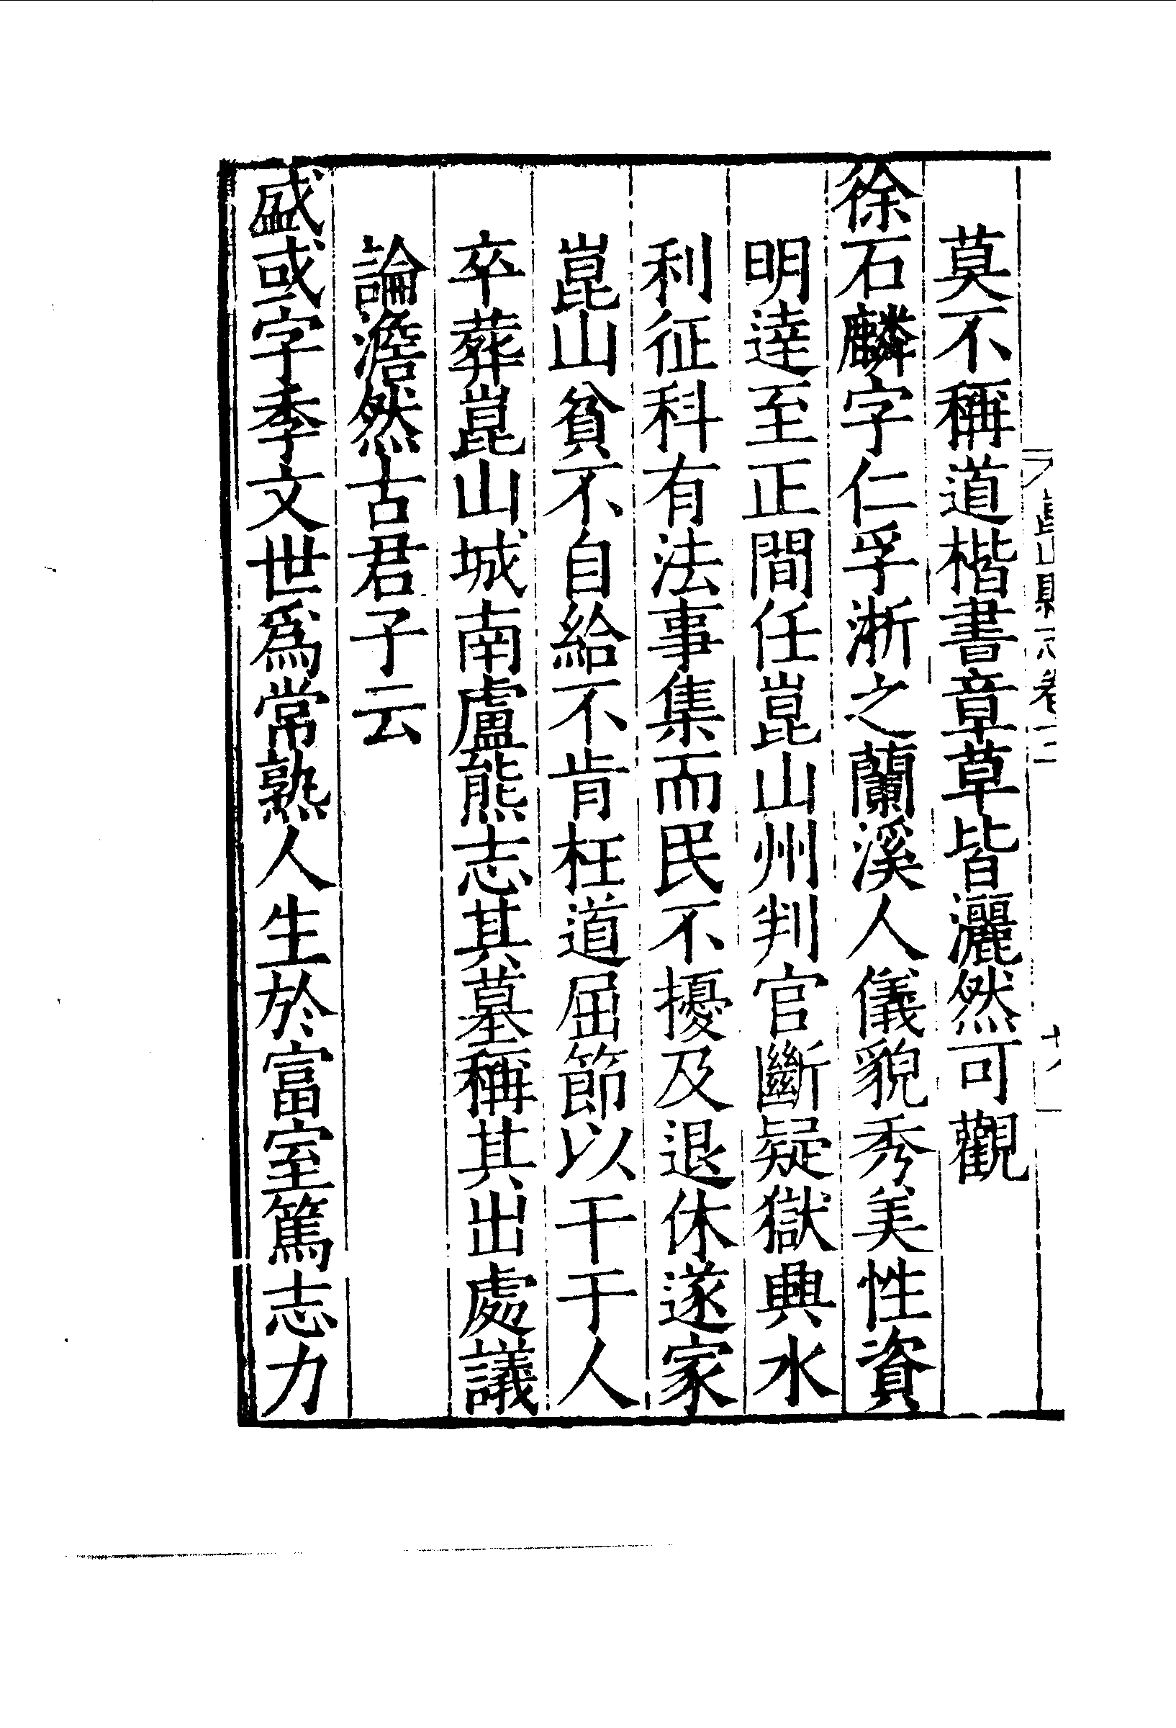 莫不稱道楷書章草皆灑然可觀
徐石麟字仁孚浙之蘭溪人儀貌秀美性資
明達至正間任崑山州判官斷疑獄興水
利征科有法事集而民不擾及退休遂家
崑山貧不自給不肯枉道屈節以干于人
卒葬崑山城南盧熊志其墓稱其出處議
論澹然古君子云
盛彧字季文世爲常熟人生於富室篤志力